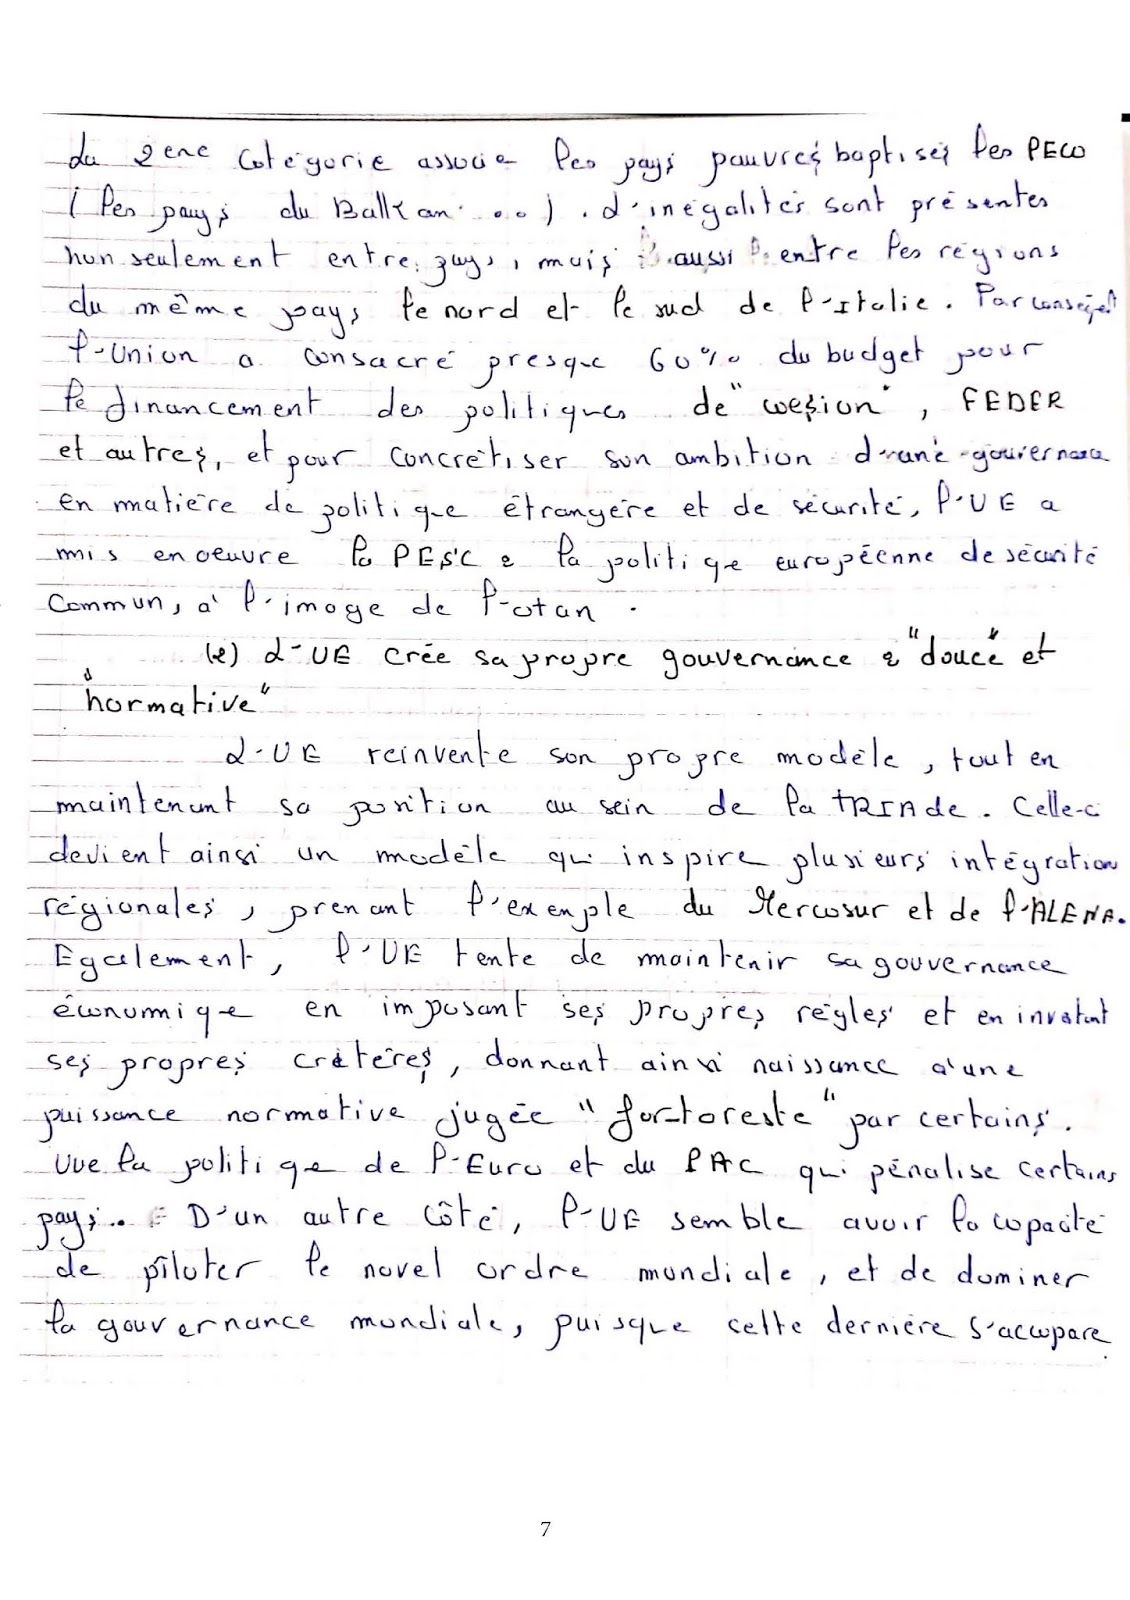 du 2ene catégorie associe les pays pauvres baptisés les PECO
(les pays du Balkan ...). d'inégalités sont présentes
non seulement entre pays, mais aussi entre les régions
du même pays le nord et le sud de l'Italie. Par conséqent
l'Union a consacré presque 60% du budget pour
le financement des politiques de "cohésion", FEDER
et autres, et pour concrétiser son ambition d'une gouvernance
en matière de politique étrangère et de sécurité, l'UE a
mis en oeuvre la PESC : la politique européenne de sécurité
commun, à l'image de l'otan.
(2) L'UE crée sa propre gouvernance : "douce" et
"normative"
L'UE reinvente son propre modèle, tout en
maintenant sa position au sein de la TRIAde. Celle-ci
devient ainsi un modèle qui inspire plusieurs intégration
régionales, prenant l'exemple du Mercosur et de l'ALENA.
Egalement, l'UE tente de maintenir sa gouvernance
économique en imposant ses propres règles et en
ses propres critères, donnant ainsi naissance à une
puissance normative jugée "fortoreste" par certains.
vue la politique de l'Euro et du PAC qui pénalise certains
pays.. D'un autre côté, l'UE semble avoir la capacité
de piloter le novel ordre mondiale, et de dominer
la gouvernance mondiale, puisque cette dernière s'accapare
7